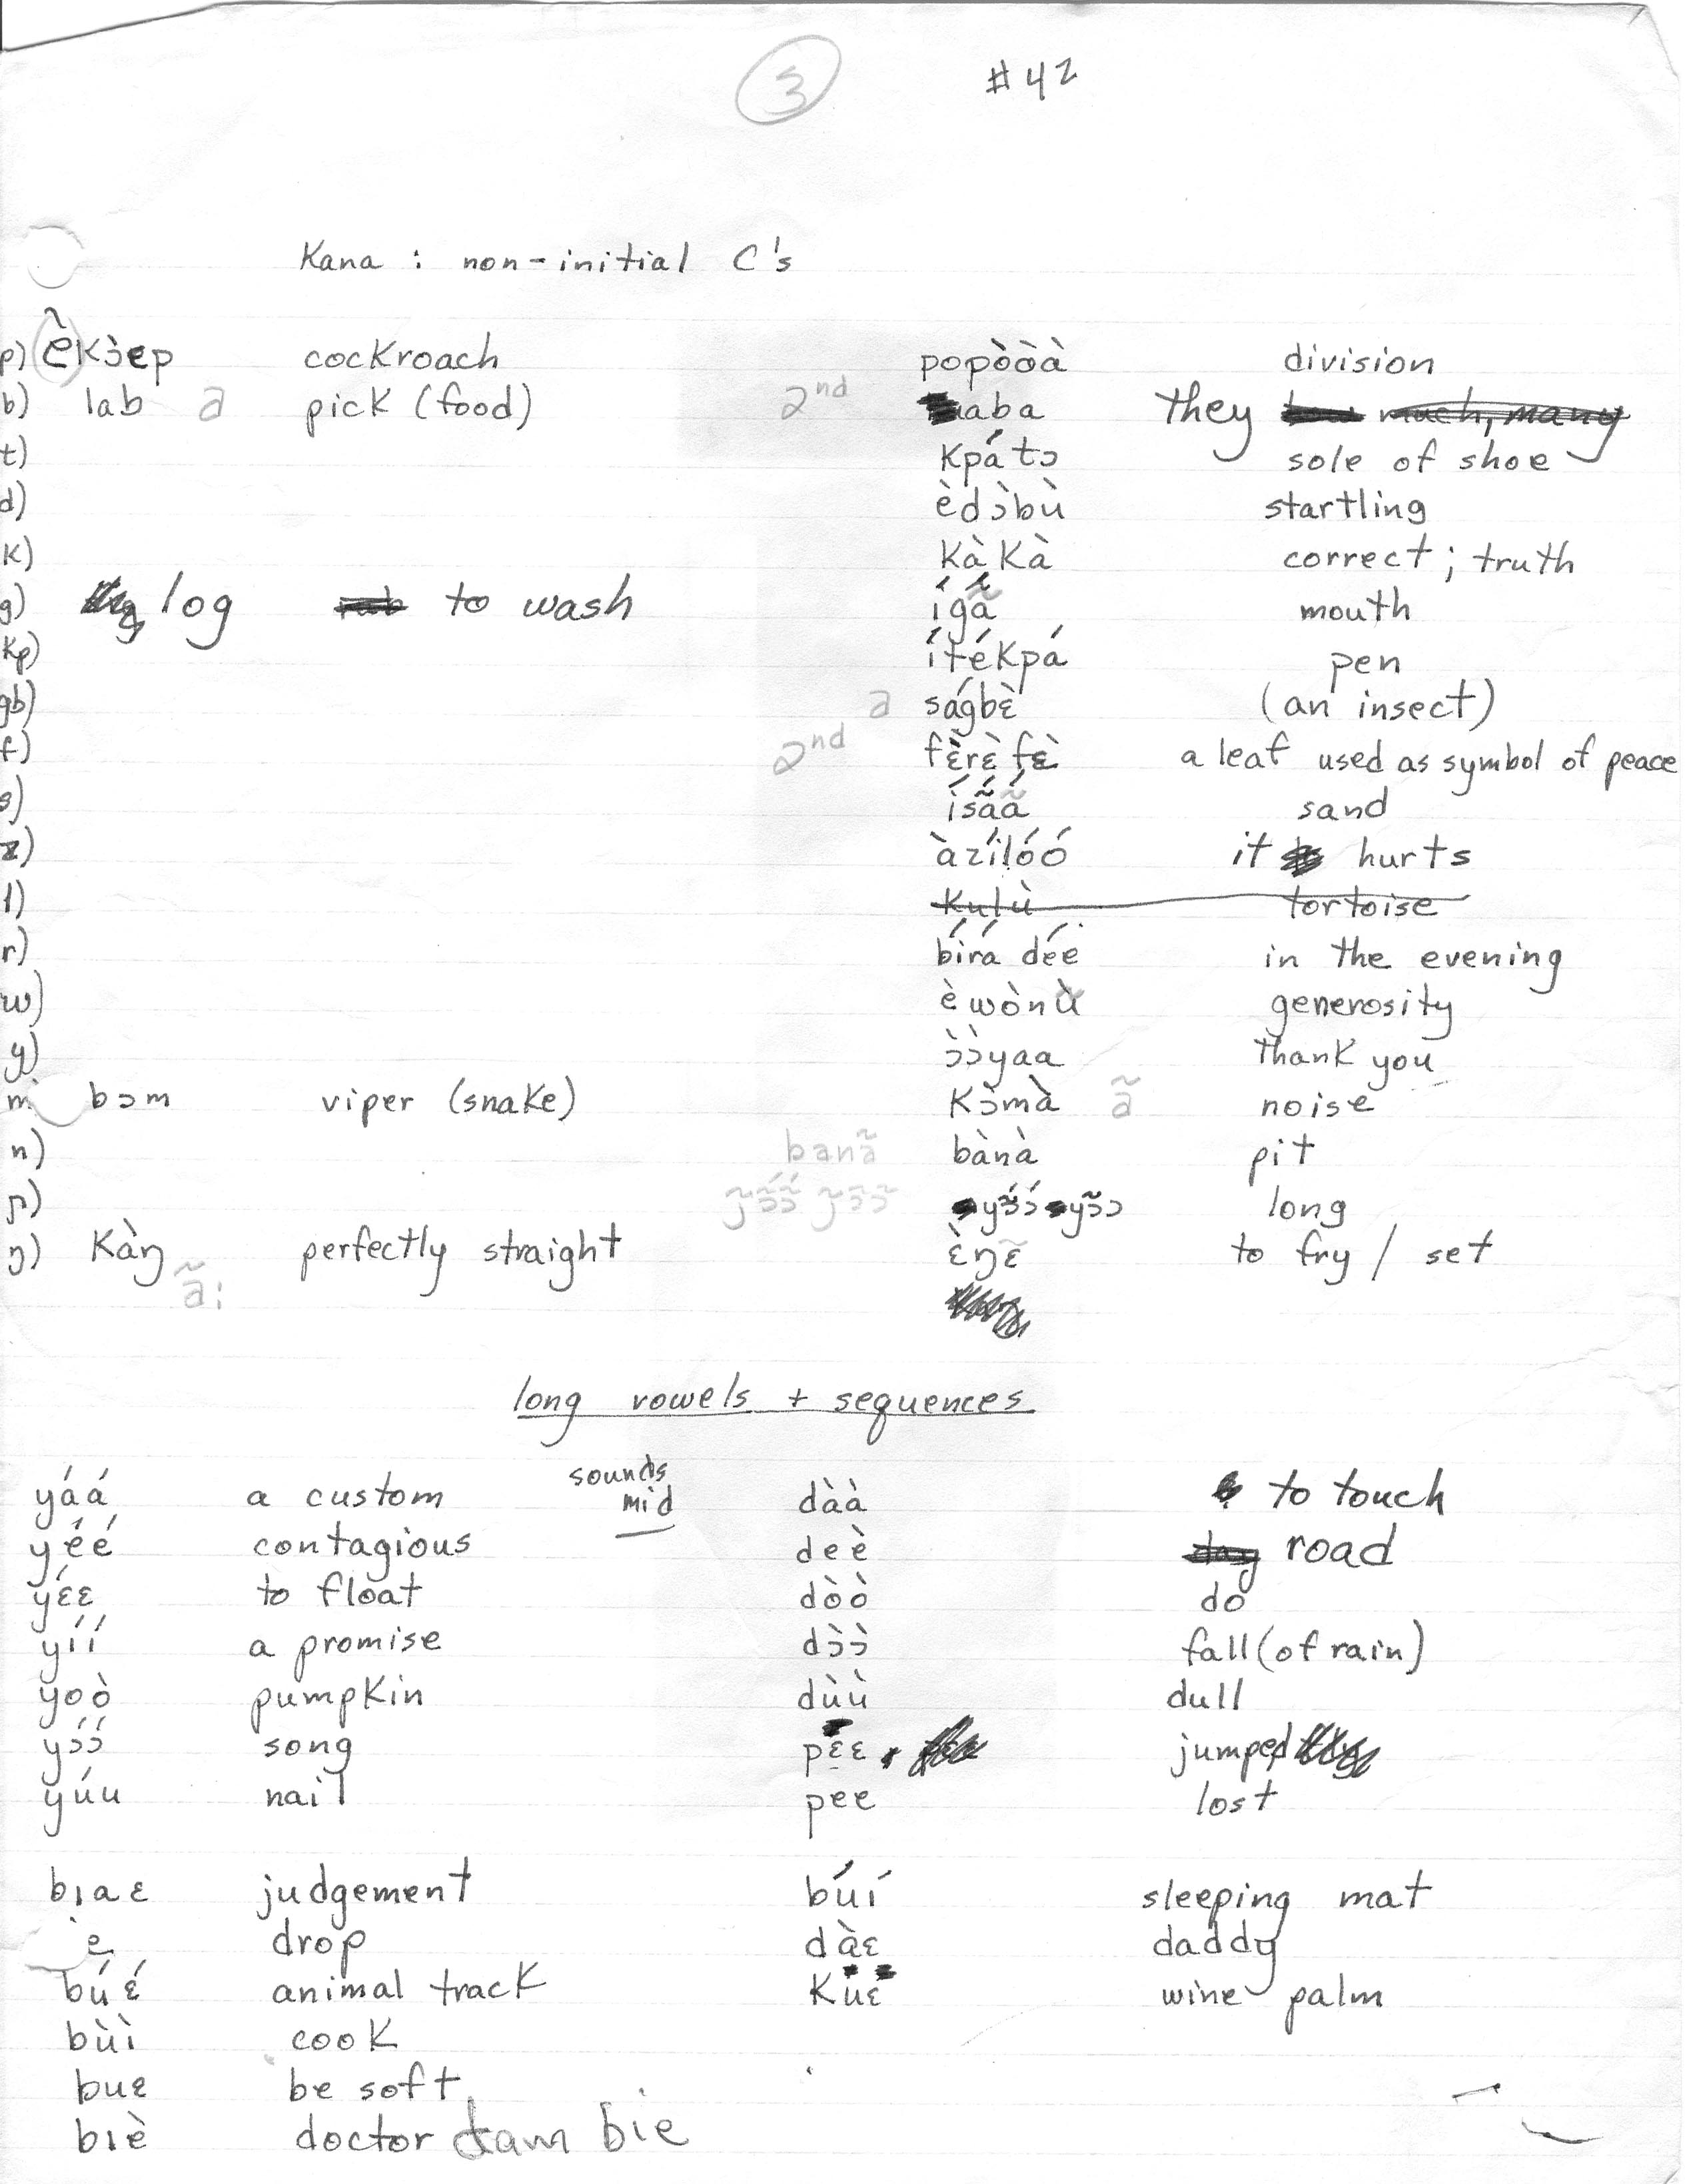 3 #42
Kana : non-initial C's
p) ẽ̀kɔ̀ɛp cockroach popòòà division
b) lab a pick (food) 2nd aba they
t) kpátɔ sole of shoe
d) èdɔ̀bù startling
k) kàkà correct; truth
g) log to wash ígã́ mouth
kp) ítékpá pen
gb) a ságbɛ̀ (an insect)
f) 2nd fɛ́rɛ̀fɛ̀ a leaf used as symbol of peace
s) ísã́ã́ sand
z) àzílóó it hurts
l) kulù tortoise
r) bírá dée in the evening
w) èwònù̃ generosity
y) ɔ̀ɔ̀yaa thank you
m bɔm viper (snake) kɔ̀mà ã noise
n) banã bànà pit
ɲ) ỹɔ̃́ɔ̃́ ỹɔ̃ɔ̃ yɔ̃́ɔ́ yɔ̃ɔ long
ŋ) kàŋ ã: perfectly straight ɛ̀ŋɛ̃ to fry / set
long vowels + sequences
yáá a custom sounds mid dàà to touch
yéé contagious deè road
yɛ́ɛ to float dòò do
yíí a promise dɔ̀ɔ̀ fall (of rain)
yoò pumpkin dùù dull
yɔ́ɔ́ song pɛɛ jumped
yúu nail pee lost
bıaɛ judgement búí sleeping mat
è drop dàɛ daddy
búɛ́ animal track kuɛ wine palm
bùì cook
buɛ be soft
bıè doctor dam bie